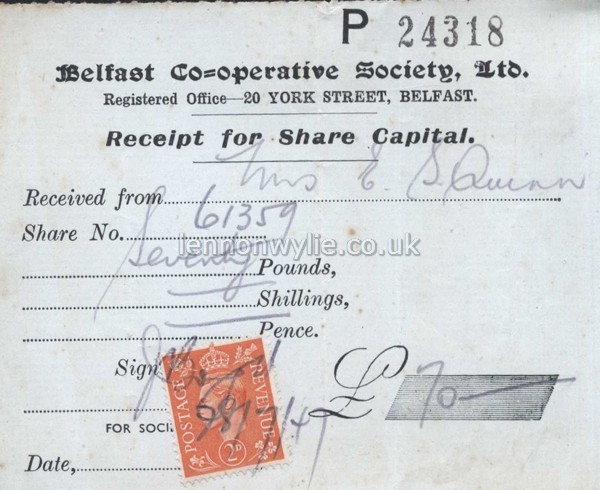 P 24318
Belfast Co=operative Society, Ltd.
Registered Office—20 YORK STREET, BELFAST.
Receipt for Share Capital.
Received from Mrs E. S. Quinn
Share No. 61359
lennonwylie.co.uk
Seventy Pounds,
Shillings,
Pence.
Sign
£ 70
POSTAGE REVENUE
2D
FOR SOCI
Date,